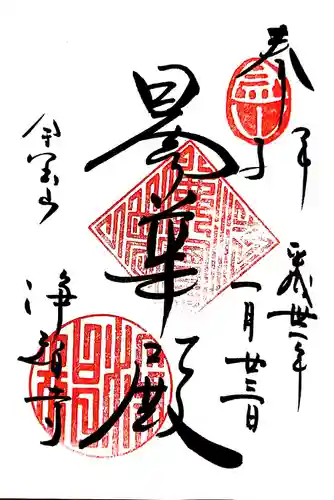 奉拝
平成卅一年
一月廿三日
曇華殿
金宝山
浄智寺